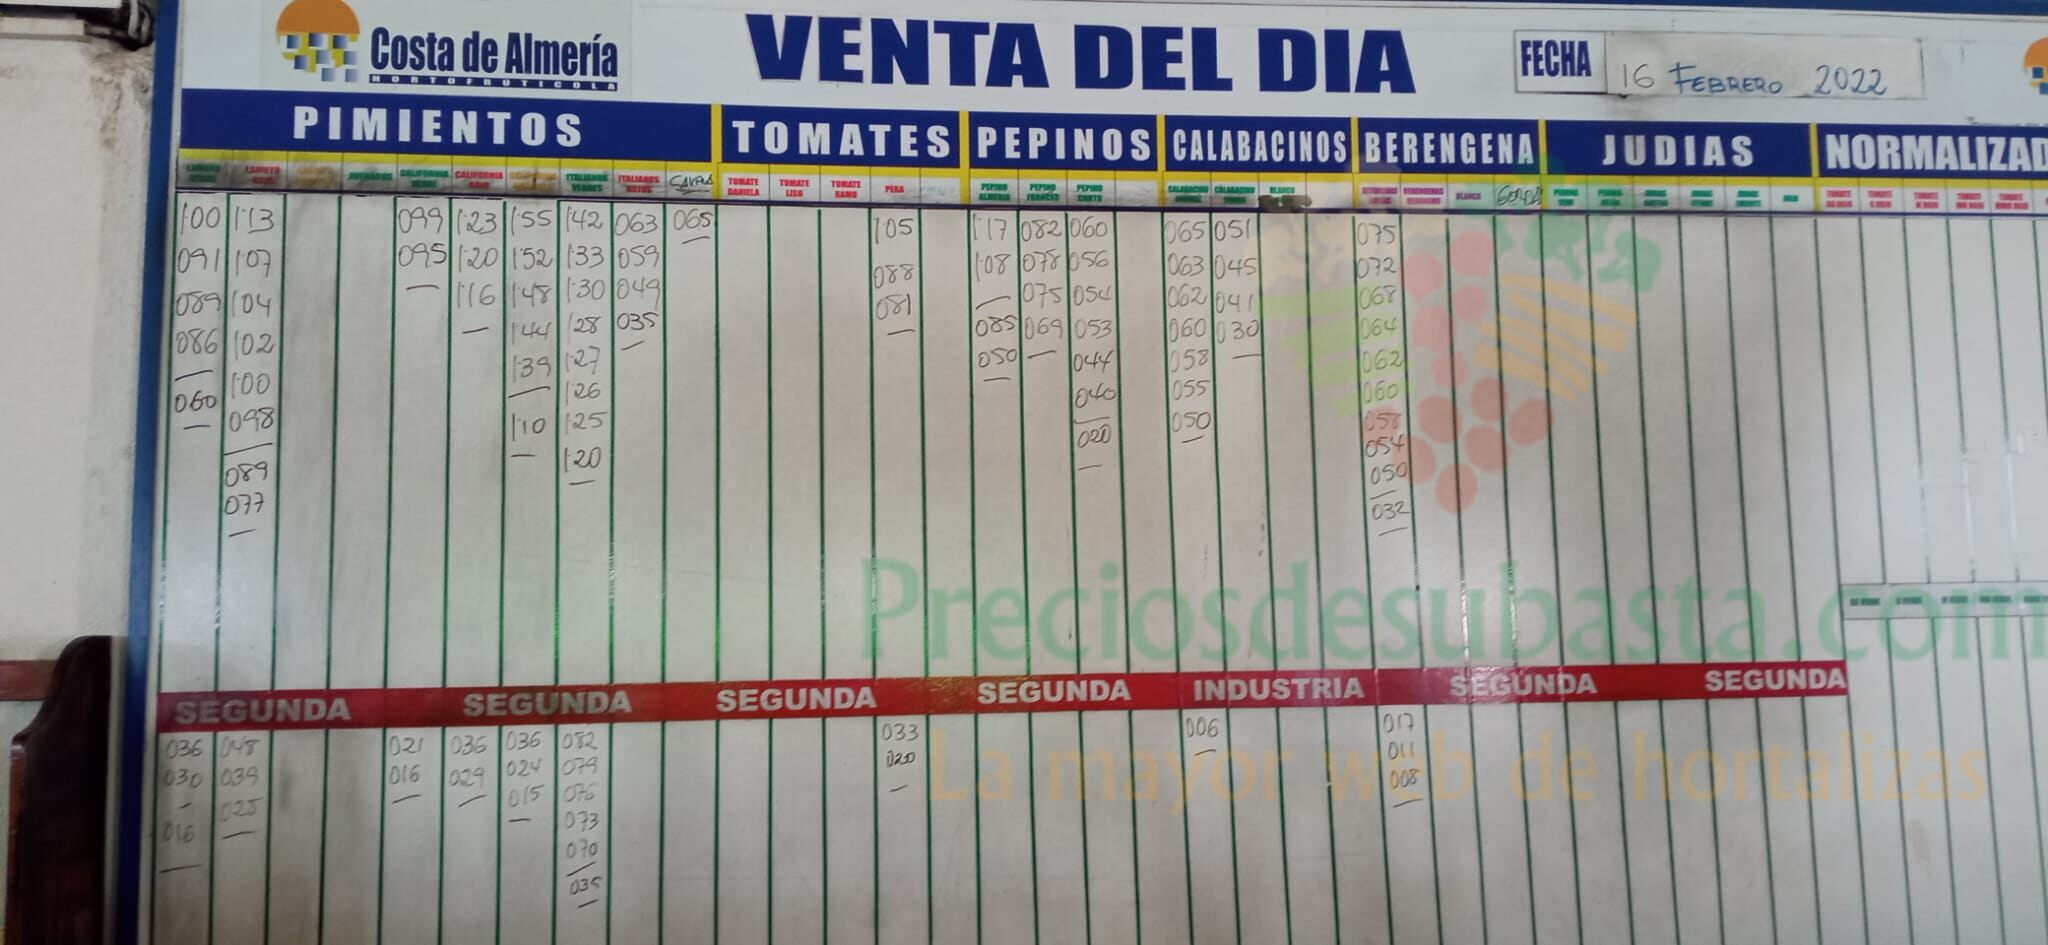 Costa de Almería
HORTOFRUTICOLA
VENTA DEL DIA
FECHA 16 FEBRERO 2022
PIMIENTOS TOMATES PEPINOS CALABACINOS BERENGENA JUDIAS NORMALIZAD
LAMUYO ROJO CALIFORNIA VERDE CALIFORNIA ROJO ITALIANOS VERDES ITALIANOS ROJOS TOMATE DANIELA TOMATE LISO TOMATE RAMO PERA PEPINO ALMERIA PEPINO FRANCES PEPINO CORTO BLANCO BLANCA GORDA
1'00 1'13 099 1'23 1'55 1'42 063 065 1'05 1'17 082 060 065 051 075
091 1'07 095 1'20 1'52 1'33 059 088 1'08 078 056 063 045 072
089 1'04 1'16 1'48 1'30 049 081 075 054 062 041 068
086 1'02 1'44 1'28 035 085 069 053 060 030 064
060 1'00 1'39 1'27 050 044 058 062
098 1'10 1'26 040 055 060
089 1'25 020 050 058
077 1'20 054
050
032
SEGUNDA SEGUNDA SEGUNDA SEGUNDA INDUSTRIA SEGUNDA SEGUNDA
036 048 021 036 036 082 033 006 017
030 039 016 029 024 079 020 011
016 025 015 076 008
073
070
035
Preciosdesubasta.com
La mayor web de hortalizas